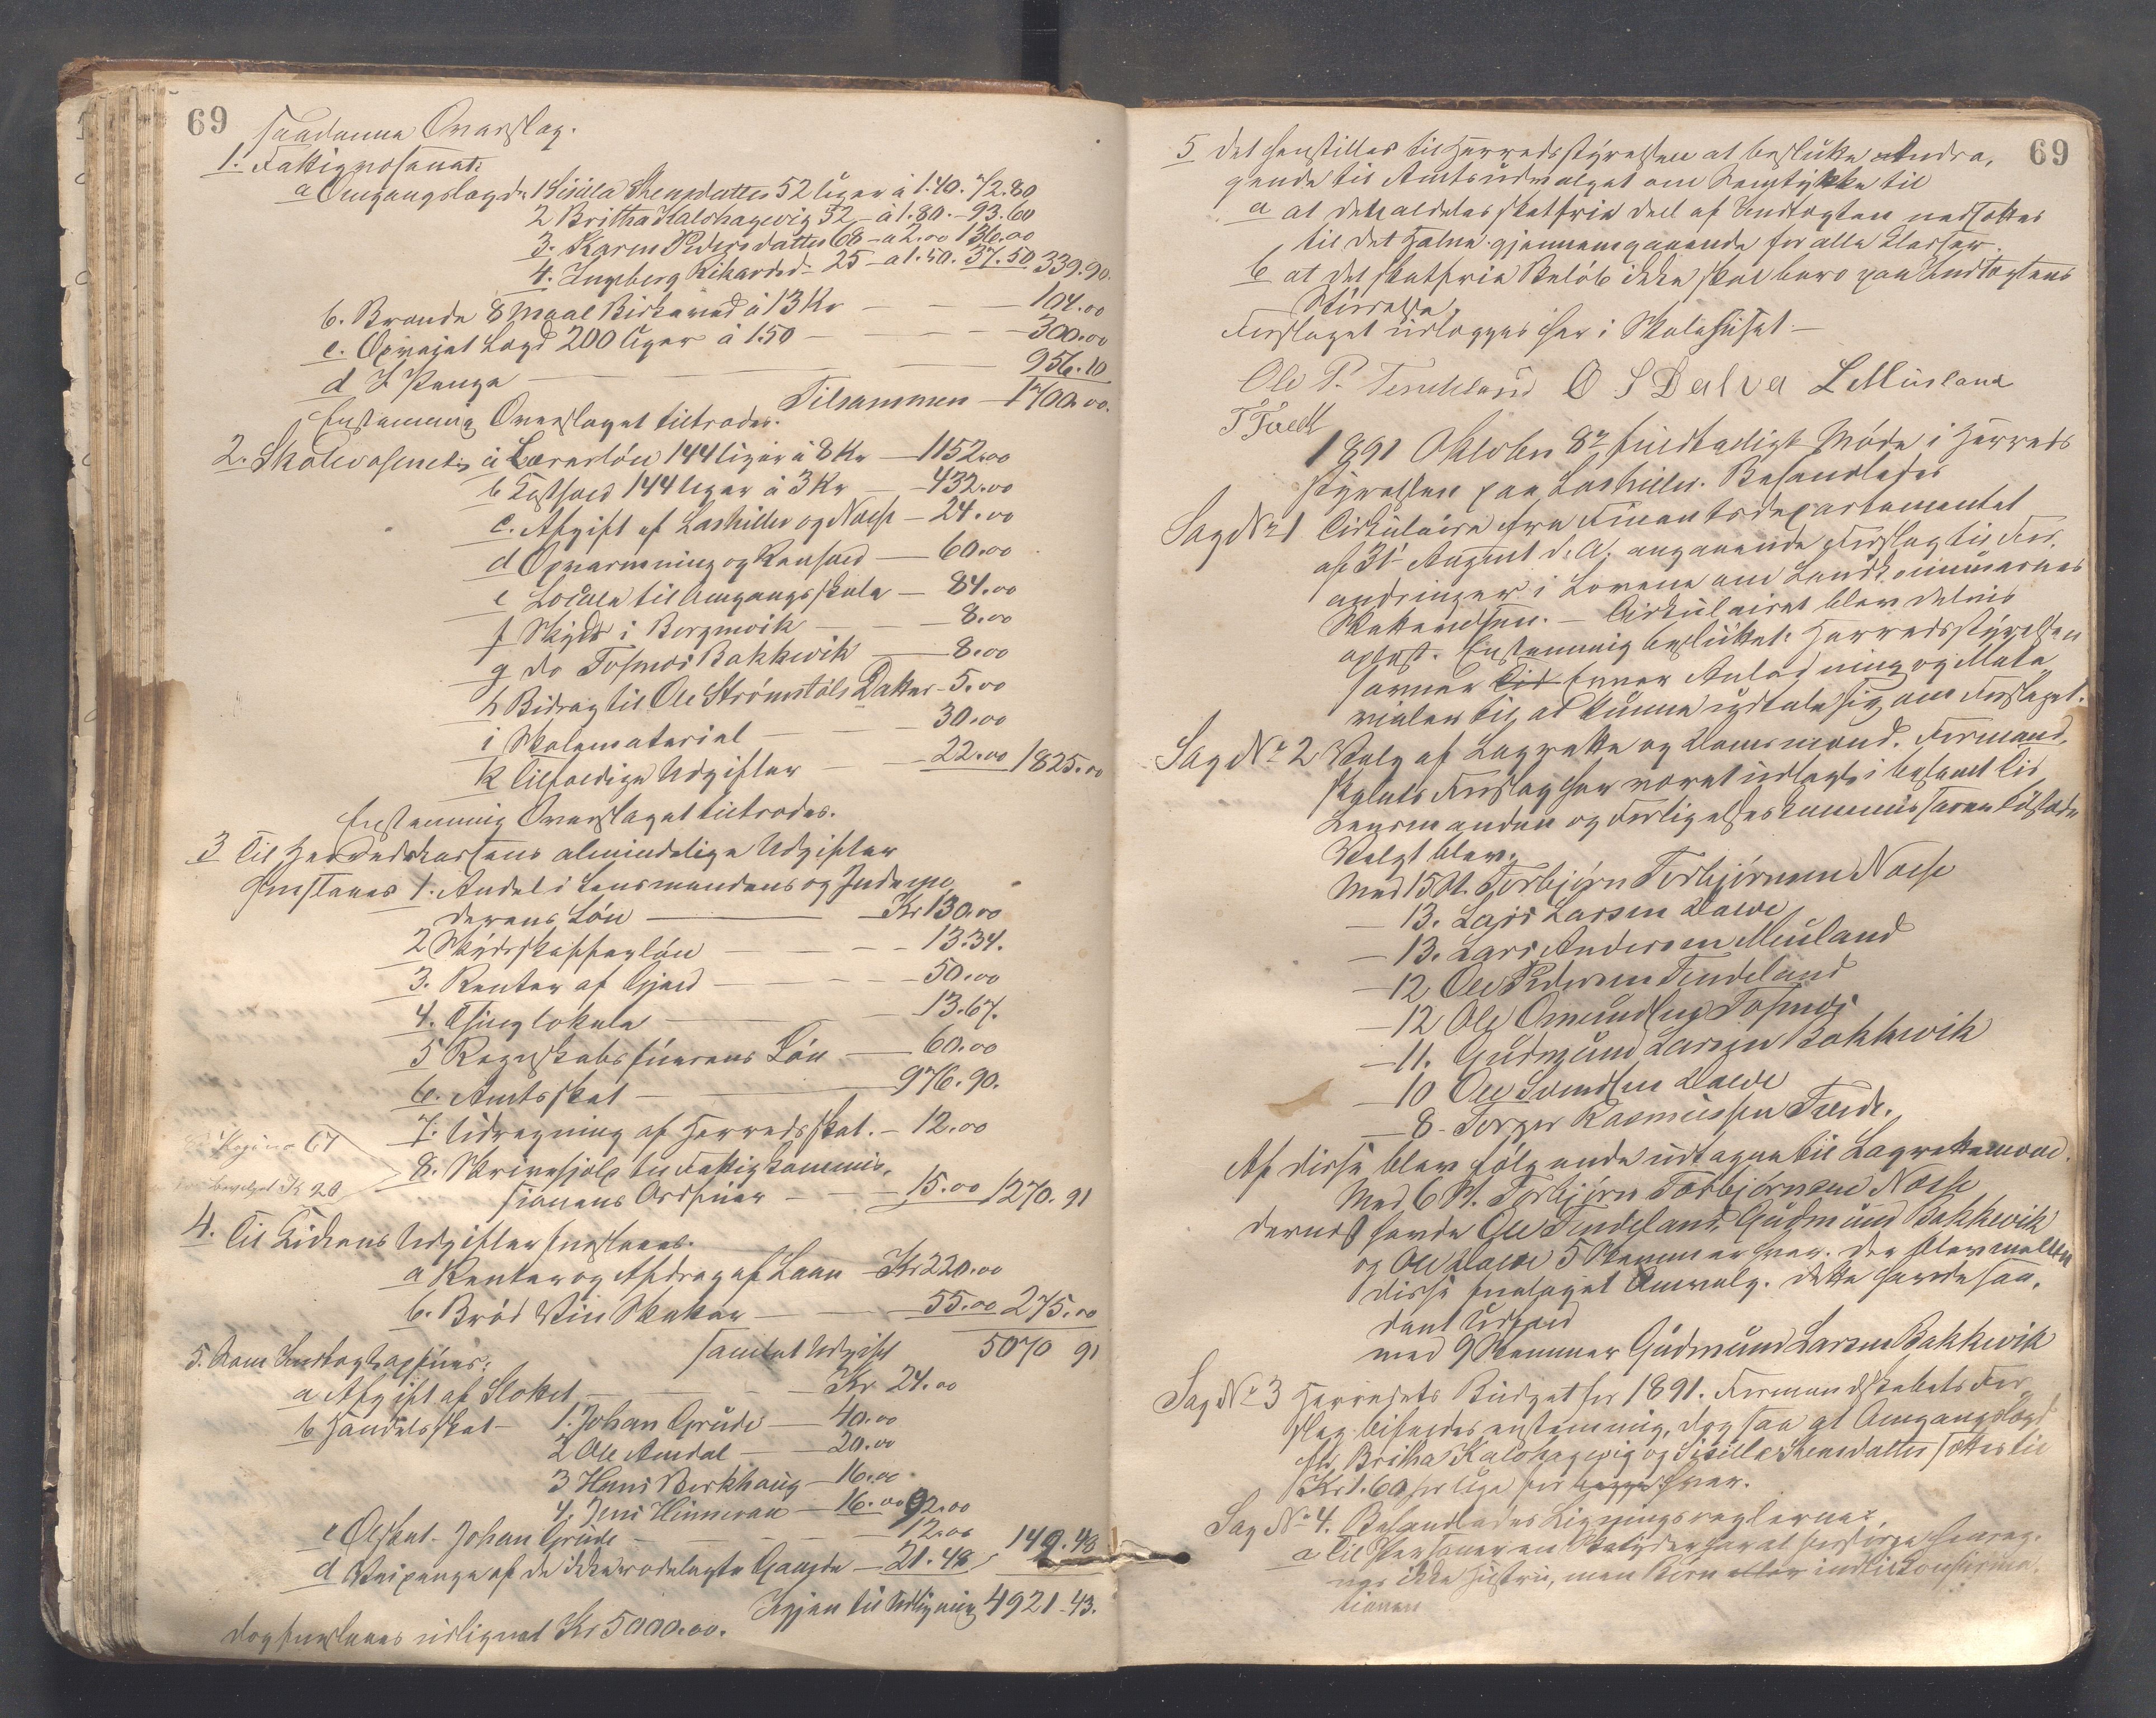 69
saadanne Overslag.
1. Fattigvæsenet:
a Omgangslægd: 1 Sisilla Stensdatter 52 Uger à 1.40. 72.80
2 Britha Kalshagevig 52 - à 1.80. - 93.60
3. Karen Pedersdatter 68 - a 2.00 136.00
4. Ingeborg Rikardsd- 25 - a 1.50. 37.50 339.90.
b. Brænde 8 Maal Birkeved à 13 Kr — 104.00
c. Opveiet Lægd 200 Uger à 1.50 — 300.00
d I Penge — 956.10
Tilsammen — 1700.00.
Enstemmig Overslaget tiltrædes.
2. Skolevæsenet: a Lærerløn 144 Uger à 8 Kr — 1152.00
b Kosthold 144 Uger à 3 Kr — 432.00
c. Afgift af Loshiller og Næse — 24.00
d Opvarmning og Renhold — 60.00
e Locale til Omgangsskole — 84.00
f Skyds i Borgevik — 8.00
g do Fosmoi Bakkevik — 8.00
h Bidrag til Ole Strömstöls Datter - 5.00
i Skolemateriel — 30.00
k Tilfældige Udgifter — 22.00 1825.00
Enstemmig Overslaget tiltrædes.
3 Til Herredskassens almindelige Udgifter
foreslaaes 1. Andel i Lensmandens og Jordmo
derens Løn — Kr 130.00
2 Skydsskafferløn — 13.34.
3. Renter af Gjæld — 50.00
4. Thinglokale — 13.67.
5 Regnskabsførerens Løn — 60.00
6. Amtsskat — 976.90.
7. Udregning af Herredsskat. — 12.00
8. Skrivehjælp til Fattigkommis,
sionens Ordfører — 15.00 1270.91
Pagina 67
bevilget Kr 20
4. Til Kirkens Udgifter foreslaaes.
a Renter og Afdrag af Laan — Kr 220.00
b. Brød Vin Skatter — 55.00 275.00
Samlet Udgift 5070 91
5. Som Indtægt opføres:
a Afgift af Slottet — Kr 24.00
b Handelsskat - 1. Johan Grude — 40.00
2 Ole Aendal — 20.00
3 Hans Berkhaug — 16.00
4. Jens Hinneran — 16.00 92.00
c Ølskat - Johan Grude — 12.00
d Veipenge af de ikke rodelagte Gaarde — 21.48 149.48
Igjen til Udligning 4921.43.
dog foreslaaes udlignet Kr 5000.00.
69
5 det henstilles til Herredsstyrelsen at beslutte Andra,
gende til Amtsudvalget om Samtykke til
a at den aldeles skatfrie Deel af Indtægten nedsættes
til det Halve gjennemgaaende for alle Klasser.
b at det skatfrie Beløb ikke skal bero paa Indtægtens
Størrelse.
Forslaget udlægges her i Skolehuset —
Ole P. Tendeland O S Dalve L Miuland
T Tvedt
1891 October 8de fuldtalligt Møde i Herreds
styrelsen paa Loshiller. Behandledes
Sag No 1 Cirkulære fra Finantsdepartementet
af 31 August d. A. angaaende Forslag til For,
andringer i Lovene om Landkommunernes
Skattevæsen. — Cirkulæret blev delvis
oplæst. Enstemmig besluttet: Herredsstyrelsen
savner Tid Evner Anledning og Mate
rialer til at kunne udtale sig om Forslaget.
Sag No 2 Valg af Lagrette og Domsmænd. Formand,
skabets Forslag har været udlagt i behørig Tid
Lensmanden og Forligelseskommissæren tilstede
Valgt blev:
Med 15 St. Torbjørn Torbjørnsen Næse
— 13. Lars Larsen Dalve
— 13. Lars Andersen Miuland
— 12 Ole Pedersen Tendeland
— 12 Ole Omundsen Fosmoi
— 11. Gudmund Larsen Bakkevik
— 10 Ole Svendsen Dalve
— 8 - Torger Rasmussen Tvedt.
Af disse blev følgende udtagne til Lagrettemænd.
Med 6 St. Torbjørn Torbjørnsen Næse
dernæst havde Ole Tendeland Gudmund Bakkevik
og Ole Dalve 5 Stemmer hver. Der blev mellem
disse foretaget Omvalg. Dette havde saa,
dant Udfald
med 9 Stemmer Gudmund Larsen Bakkevik
Sag No 3 Herredets Budget for 1891. Formandskabets For,
slag bifaldes enstemmig, dog saa at Omgangslægd
for Britha Kalshagevig og Sisilla Stensdatter sættes til
Kr 1.60 pr Uge for begge hver.
Sag No 4. Behandledes Ligningsreglerne,
a Til Personer en Skatyder har at forsørge henreg,
nes ikke Hustru, men Børn eller indtil Konfirma,
tionen